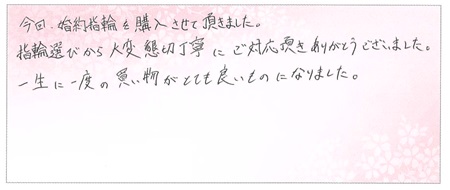 今回、婚約指輪を購入させて頂きました。
指輪選びから大変懇切丁寧にご対応頂きありがとうございました。
一生に一度の買い物がとても良いものになりました。